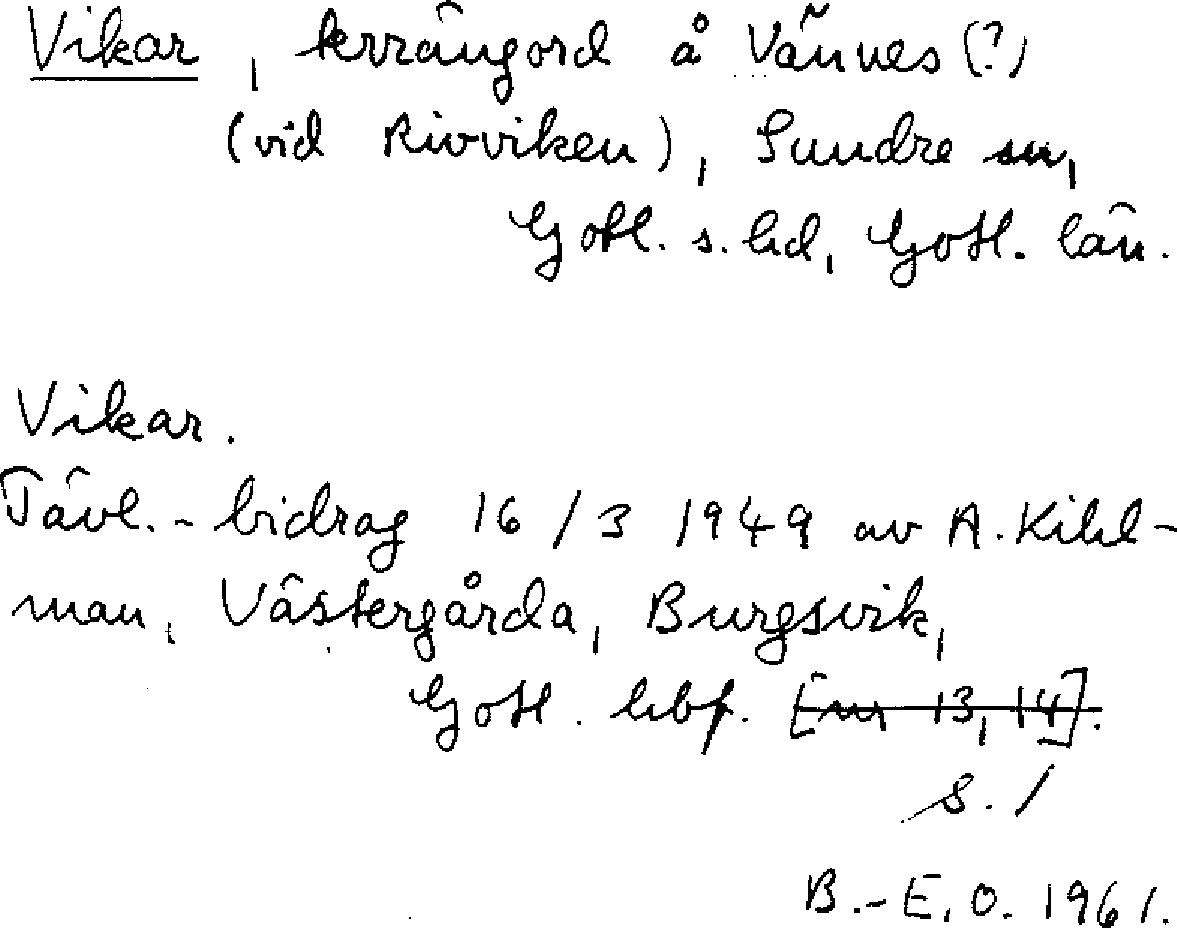 Vikar, terrängord å Vännes (?)
(vid Rivviken), Sundre sn,
Gotl. s. hd, Gotl. län.
Vikar.
Tävl.-bidrag 16/3 1949 av A. Kihl-
man, Västergårda, Burgsvik,
Gotl. hbf. [nr 13, 14].
S. 1
B.-E. O. 1961.